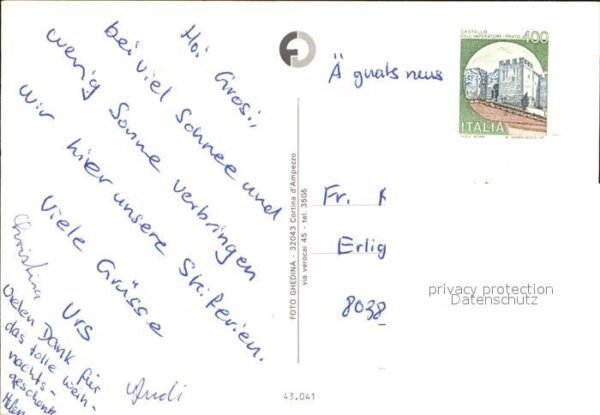 Hoi Grosi,
bei viel Schnee und
wenig Sonne verbringen
wir hier unsere Skiferien.
Viele Grüsse
Urs
Christina
Vielen Dank für
das tolle Weih-
nachts-
geschenk
Helen
Andi
Ä guets neus
CASTELLO
DELL'IMPERATORE - PRATO
400
ITALIA
FOTO GHEDINA - 32043 Cortina d'Ampezzo
via verocai 45 - tel. 3505
Fr.
Erlig
8038
privacy protection
Datenschutz
43.041